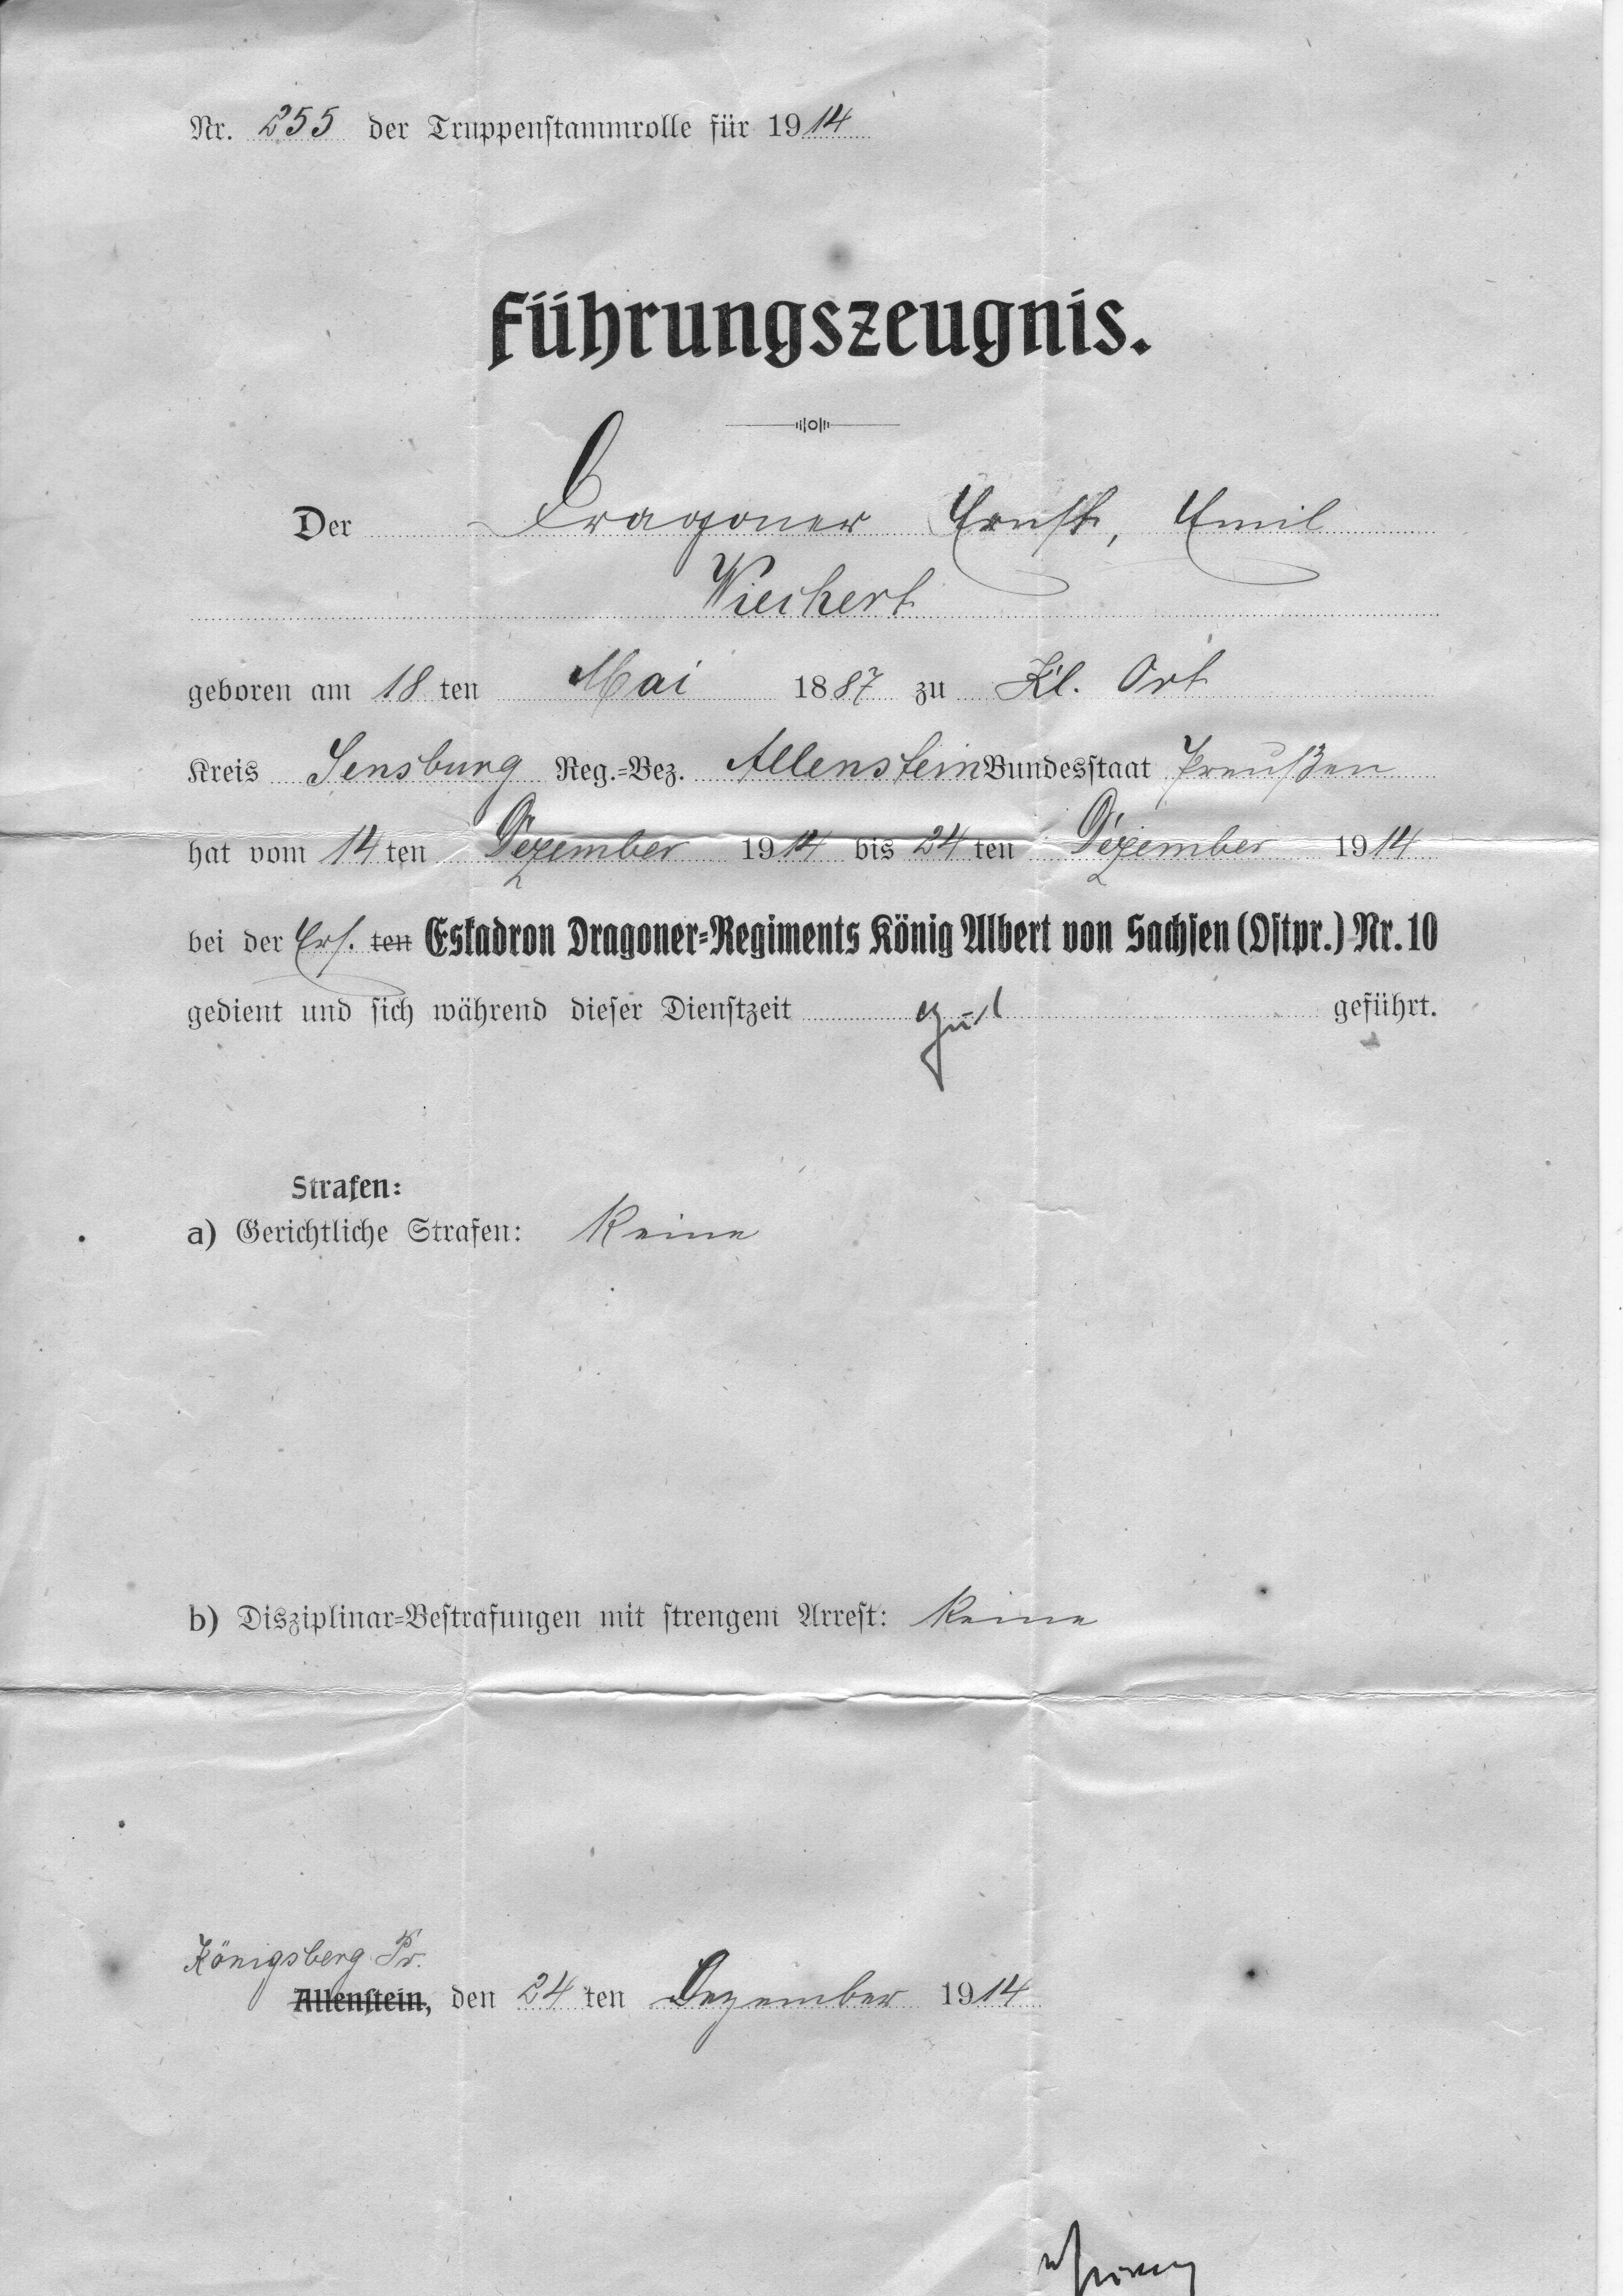 Nr. 255 der Truppenstammrolle für 1914
Führungszeugnis.
Der Dragoner Ernst, Emil
Wiechert
geboren am 18 ten Mai 1887 zu Kl. Ort
Kreis Sensburg Reg.-Bez. Allenstein Bundesstaat Preußen
hat vom 14 ten Dezember 1914 bis 24 ten Dezember 1914
bei der Ers. ten Eskadron Dragoner-Regiments König Albert von Sachsen (Ostpr.) Nr. 10
gedient und sich während dieser Dienstzeit gut geführt.
Strafen:
a) Gerichtliche Strafen: Keine
b) Disziplinar-Bestrafungen mit strengem Arrest: Keine
Königsberg Pr.
Allenstein, den 24 ten Dezember 1914